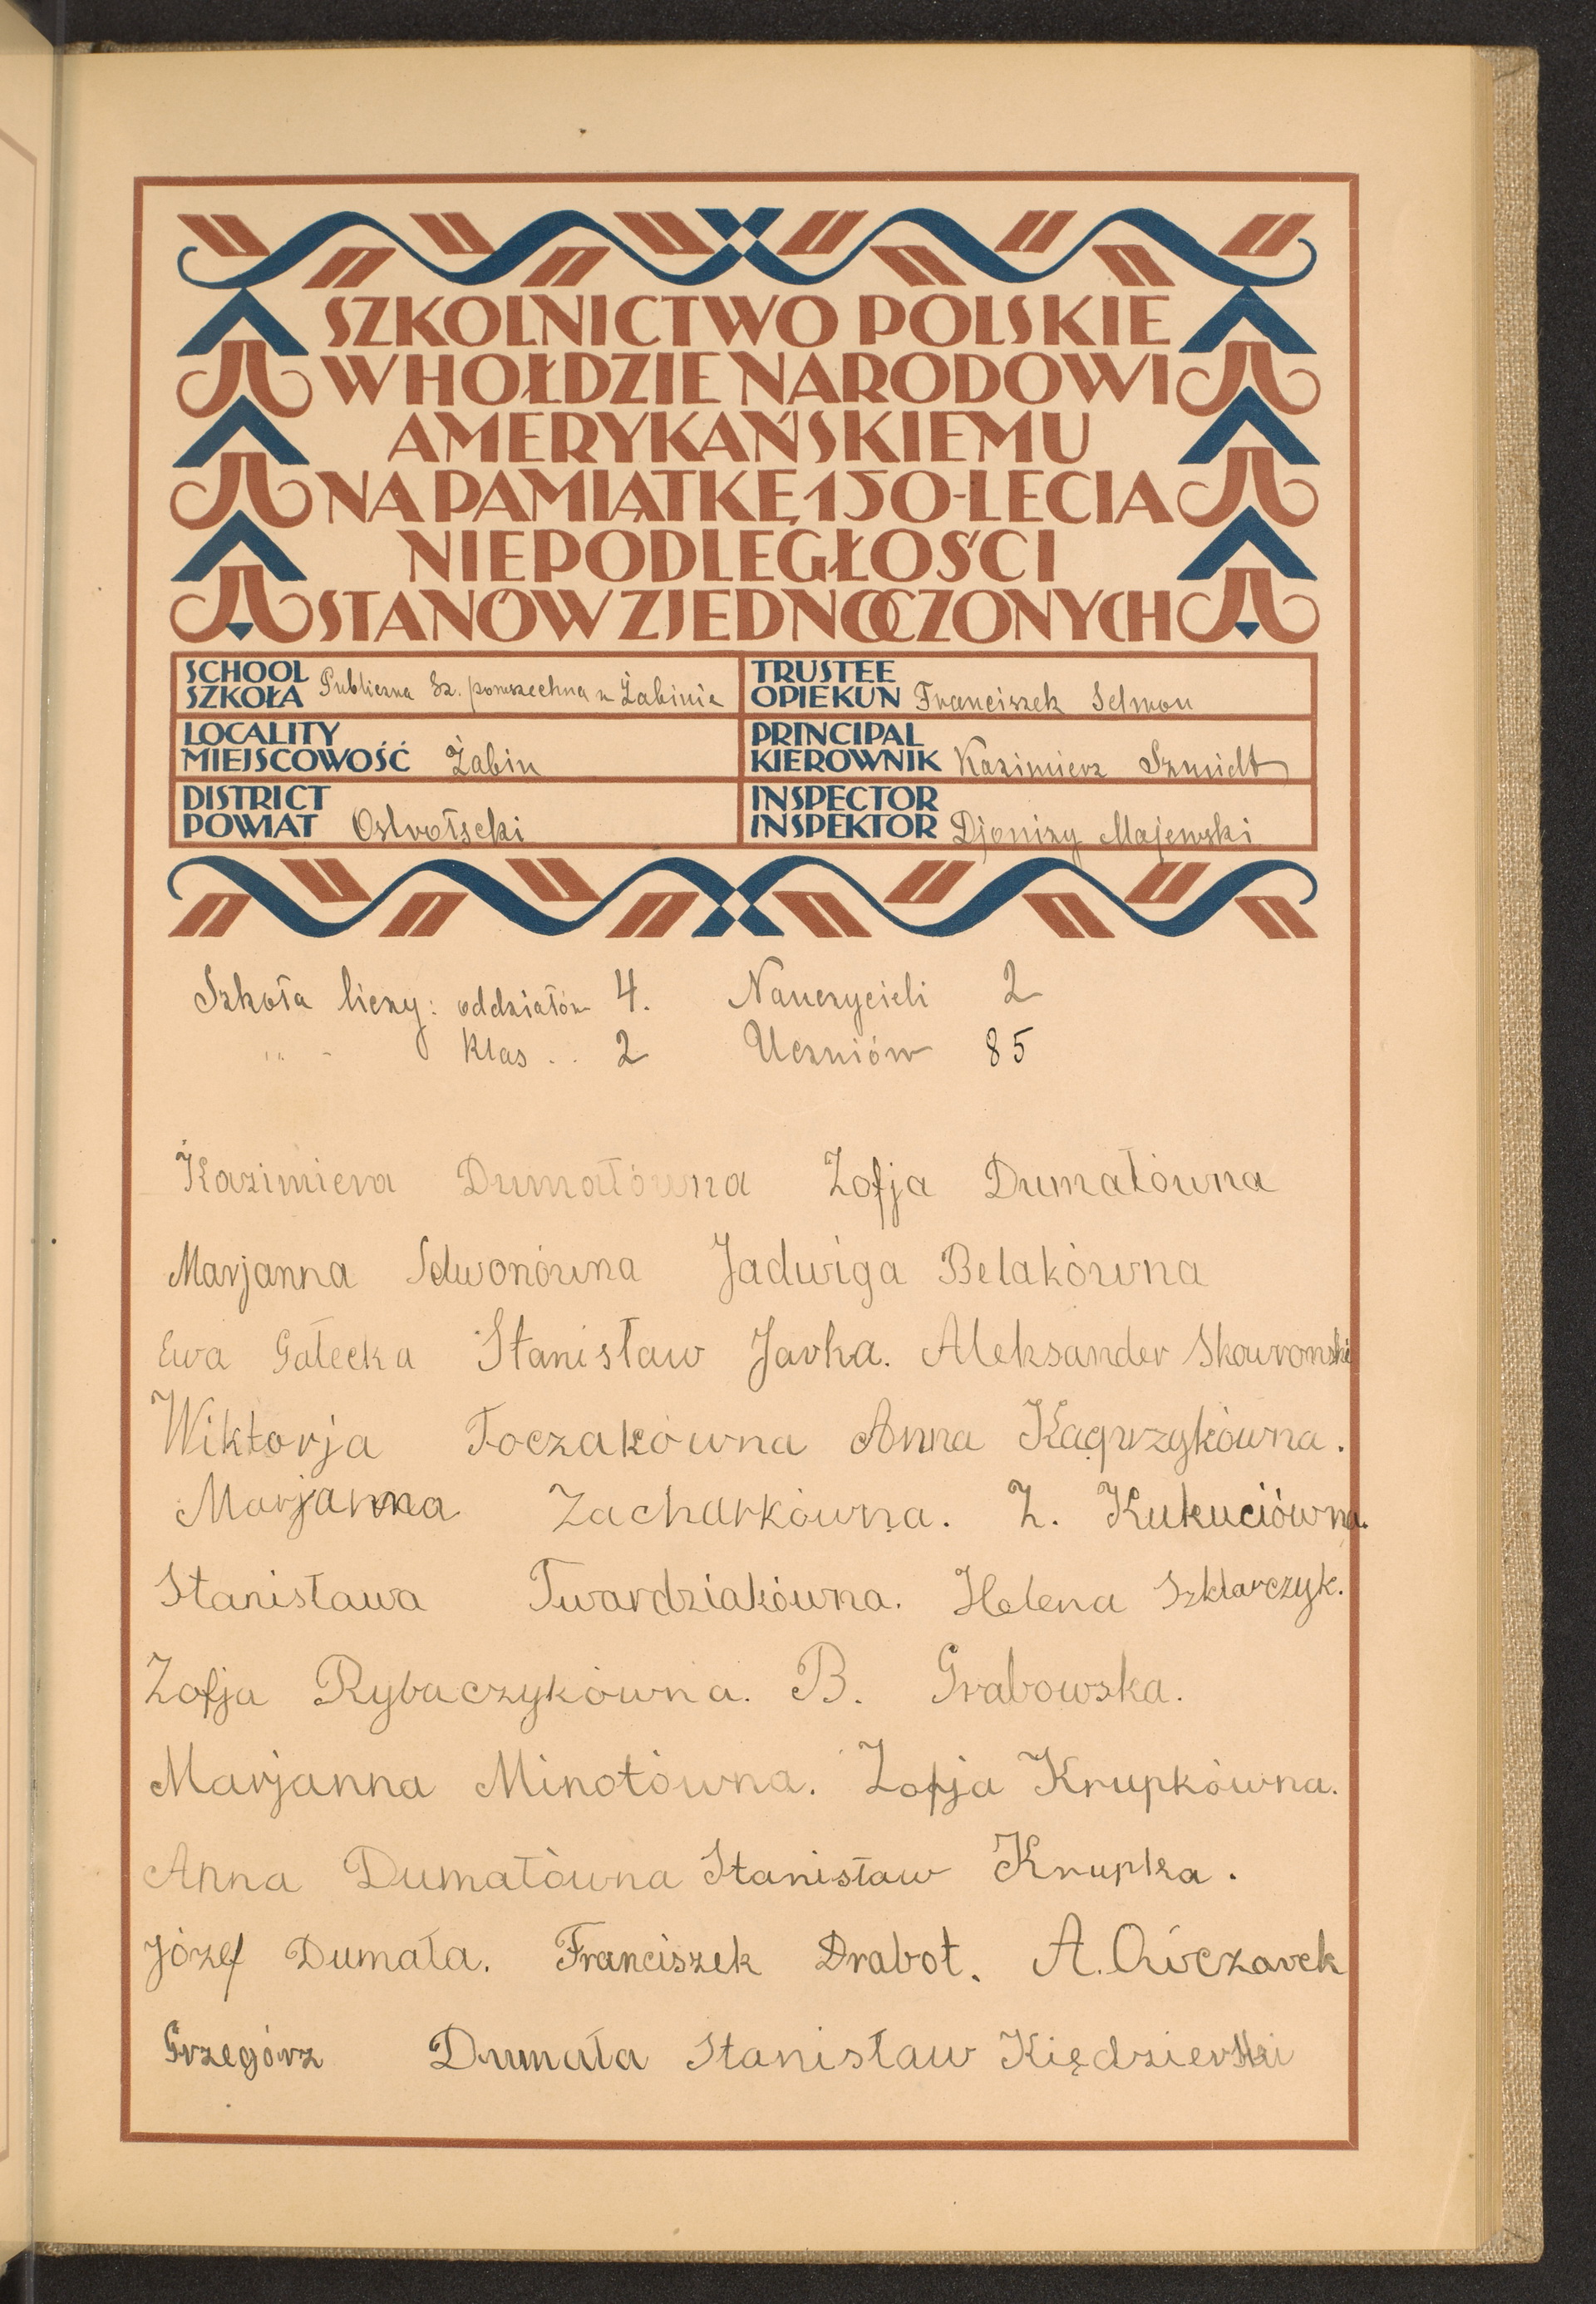 SZKOLNICTWO POLSKIE
W HOŁDZIE NARODOWI
AMERYKAŃSKIEMU
NA PAMIĄTKĘ 150-LECIA
NIEPODLEGŁOŚCI
STANÓW ZJEDNOCZONYCH
SCHOOL
SZKOŁA Publiczna Sz. powszechna w Żabinie
LOCALITY
MIEJSCOWOŚĆ Żabin
DISTRICT
POWIAT Ostrołęcki
TRUSTEE
OPIEKUN Franciszek Selwon
PRINCIPAL
KIEROWNIK Kazimierz Szmidt
INSPECTOR
INSPEKTOR Djonizy Majewski
Szkoła liczy: oddziałów 4. Nauczycieli 2
" " - Klas . . 2 Uczniów 85
Kazimiera Dumałówna Zofja Dumałówna
Marjanna Selwonówna Jadwiga Belakówna
Ewa Gałecka Stanisław Jarka. Aleksander Skowronski
Wiktorja Toczakówna Anna Kacprzykówna.
Marjanna Zacharkówna. Z. Kukuciówna.
Stanisława Twardziakówna. Helena Szklarczyk.
Zofja Rybaczykówna. B. Grabowska.
Marjanna Minotówna. Zofja Krupkówna.
Anna Dumałówna Stanisław Krupka.
Józef Dumała. Franciszek Drabot. A.
Grzegórz Dumała Stanisław Kiędzierski